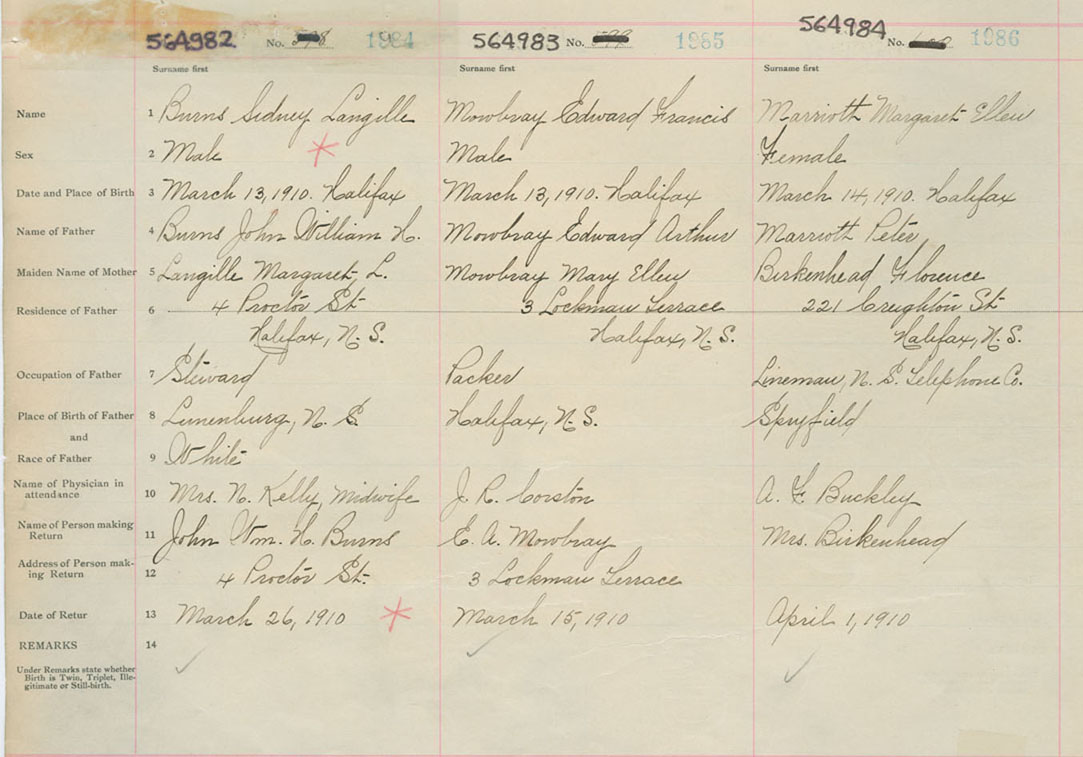 564982 No. 1984 564983 No. 1985 564984 No. 1986
Surname first Surname first Surname first
Name 1 Burns Sidney Langille Mowbray Edward Francis Marrioth Margaret Ellen
Sex 2 Male Male Female
Date and Place of Birth 3 March 13, 1910. Halifax March 13, 1910. Halifax March 14, 1910. Halifax
Name of Father 4 Burns John William H. Mowbray Edward Arthur Marrioth Peter
Maiden Name of Mother 5 Langille Margaret, L. Mowbray Mary Ellen Birkenhead Florence
Residence of Father 6 4 Proctor St. 3 Lockman Terrace 221 Creighton St.
Halifax, N. S. Halifax, N. S. Halifax, N. S.
Occupation of Father 7 Steward Packer Lineman, N. S. Telephone Co.
Place of Birth of Father 8 Lunenburg, N. S. Halifax, N. S. Spryfield
and
Race of Father 9 White
Name of Physician in
attendance 10 Mrs. N. Kelly, Midwife J. R. Corston A. F. Buckley
Name of Person making
Return 11 John Wm. H. Burns E. A. Mowbray Mrs. Birkenhead
Address of Person mak-
ing Return 12 4 Proctor St. 3 Lockman Terrace
Date of Retur 13 March 26, 1910 March 15, 1910 April 1, 1910
REMARKS 14
Under Remarks state whether
Birth is Twin, Triplet, Ille-
gitimate or Still-birth.